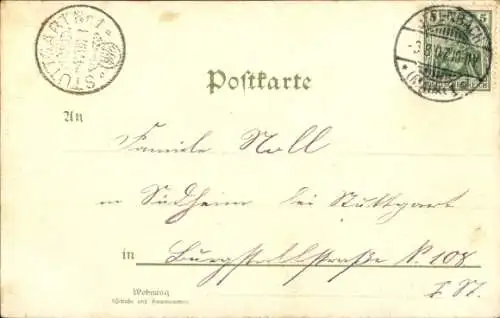 STUTTGART No 1
5
-3.8.07.10-11V
Postkarte
An
Familie Noll
in Südheim bei Stuttgart
in Burgstallstraße N. 108
I. St.
Wohnung
(Straße und Hausnummer)